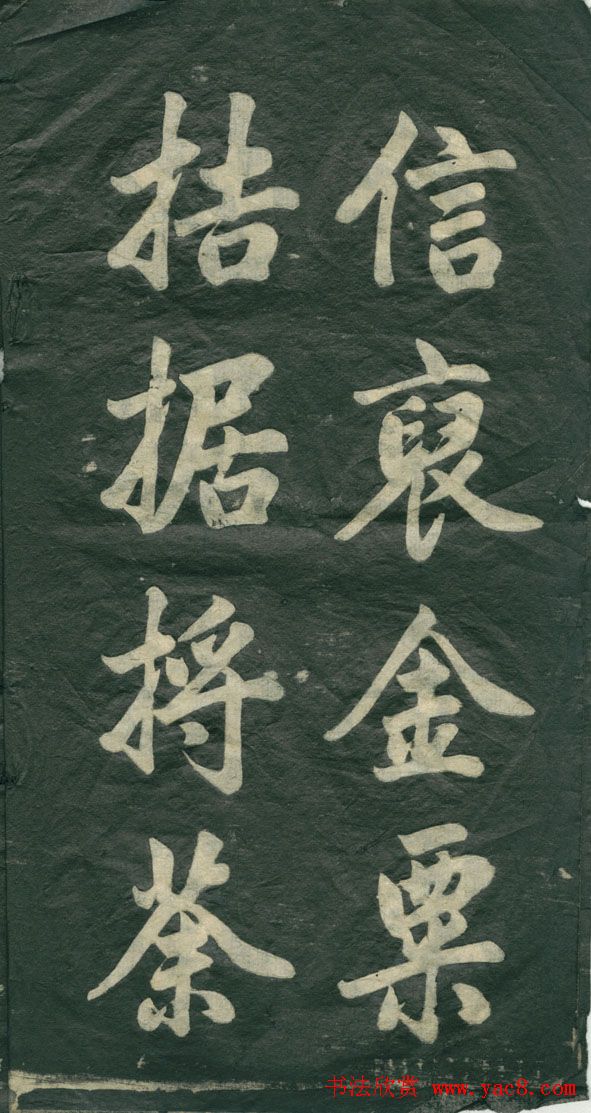 信裒金粟
拮据捋荼
书法欣赏 www.yac8.com